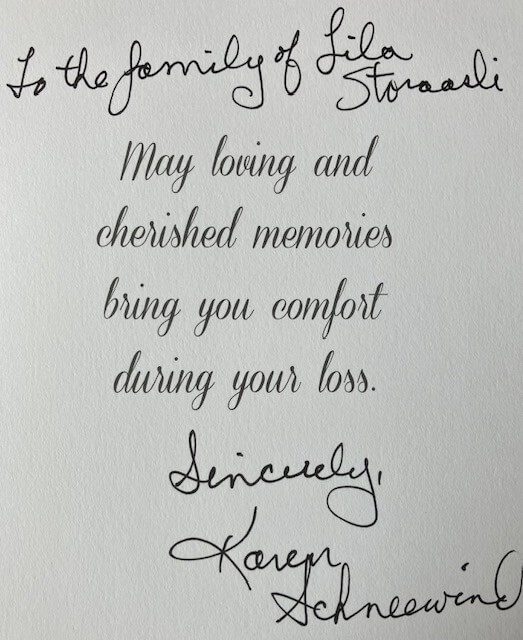 To the family of Lila
Storaasli
May loving and
cherished memories
bring you comfort
during your loss.
Sincerely,
Karen
Schneewind